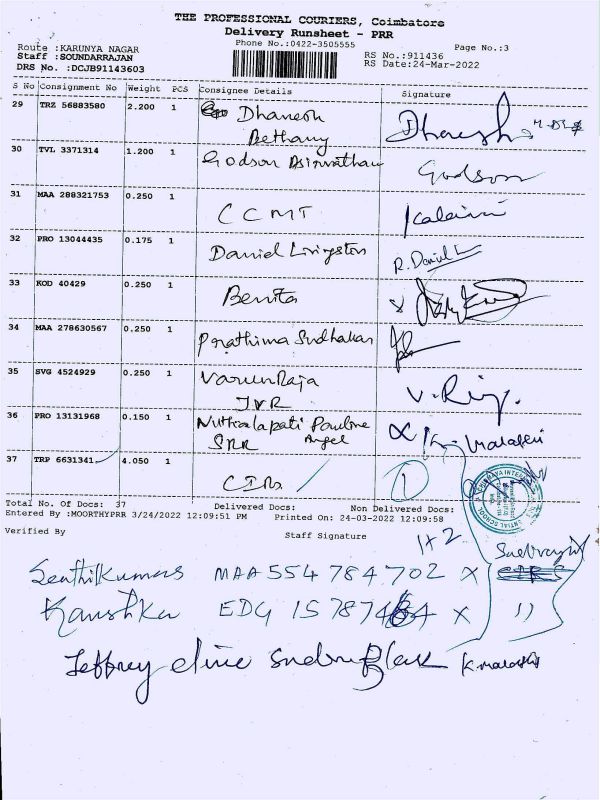 THE PROFESSIONAL COURIERS, Coimbatore
Delivery Runsheet - PRR
Phone No.:0422-3505555
Page No.:3
Route :KARUNYA NAGAR
Staff :SOUNDARRAJAN
DRS No. :DCJB91143603
RS No.:911436
RS Date:24-Mar-2022
S No Consignment No Weight PCS Consignee Details Signature
29 TRZ 56883580 2.200 1 Dhanesh Dhanesh
Bethany
30 TVL 3371314 1.200 1 Godson Godson
31 MAA 288321753 0.250 1 CCMT Kalaivi
32 PRO 13044435 0.175 1 Daniel Livingston R. Daniel L
33 KOD 40429 0.250 1 Benita
34 MAA 278630567 0.250 1 Prathima Sudhakar
35 SVG 4524929 0.250 1 Varun Raja
JVR
36 PRO 13131968 0.150 1 Nuthalapati Pauline
SRR Angel
37 TRP 6631341 4.050 1
Total No. Of Docs: 37 Delivered Docs: Non Delivered Docs:
Entered By :MOORTHYPRR 3/24/2022 12:09:51 PM Printed On: 24-03-2022 12:09:58
Verified By Staff Signature
1+2
Senthilkumars MAA 554 784 702 X
Kanishka EDG X 11
Jeffrey